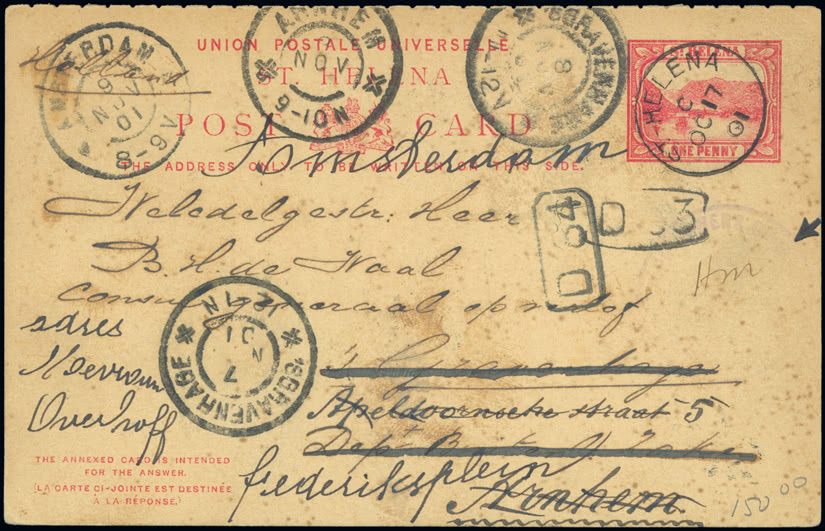 UNION POSTALE UNIVERSELLE
ST. HELENA
POST CARD
THE ADDRESS ONLY TO BE WRITTEN ON THIS SIDE.
Holland
AMSTERDAM
9 NOV 01
8-9 V
ARNHEM
NOV
9-10 N
'SGRAVENHAGE
8 NOV
ST. HELENA
ONE PENNY
ST. HELENA
C
OC 17
01
Amsterdam
Weledelgestr: Heer
B. H. de Waal
Consul generaal op non
D 84
D 33
Hm
's Gravenhage
adres
Mevrouw
Overhoff
'SGRAVENHAGE
7 NOV 01
12-1N
Apeldoornsche straat 5
Dept Buiten
Frederiksplein
Arnhem
THE ANNEXED CARD IS INTENDED
FOR THE ANSWER.
(LA CARTE CI-JOINTE EST DESTINÉE
À LA RÉPONSE.)
150 00